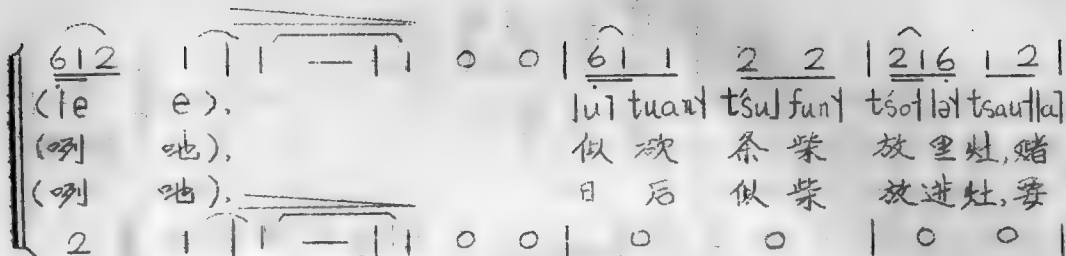 6 1 2 1 | 1 — 1 | 1 0 0 | 6 1 1 2 2 | 2 1 6 1 2 |
(le e), lu˥ tuan˦ tśu˩ fun˦ tśo˧ lə˦ tsau˧ la˥
(咧 吔), 似欲 条柴 放里灶,赌
(咧 吔), 日后 似柴 放进灶,要
2 1 | 1 — 1 | 1 0 0 | 0 0 | 0 0 |